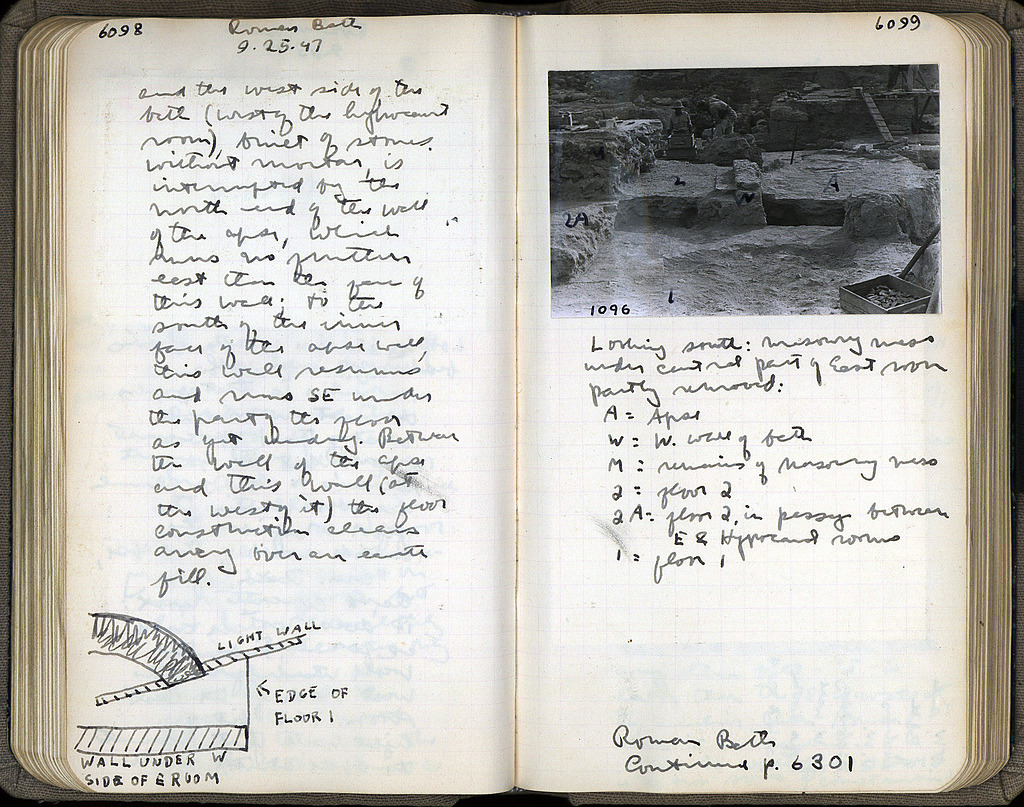 6098
Roman Bath
9.25.47
and the west side of the
bath (west of the hypocaust
room), built of stones
without mortar, is
interrupted by the
north end of the wall
of the apse, which
runs no further
east than the face of
this wall; to the
south of the inner
face of the apse wall,
this wall resumes
and runs SE under
the part of the floor
as yet standing. Between
the wall of the apse
and this wall (at
the west of it) the floor
construction
away over an earth
fill.
LIGHT WALL
EDGE OF
FLOOR 1
WALL UNDER W
SIDE OF E ROOM
6099
2
A
W
2A
1
1096
Looking south: masonry mass
under central part of East room
partly removed:
A = Apse
W = W. wall of bath
M = remains of masonry mass
2 = floor 2
2A = floor 2, in passage between
E & Hypocaust rooms
1 = floor 1
Roman Bath
Continued p. 6301